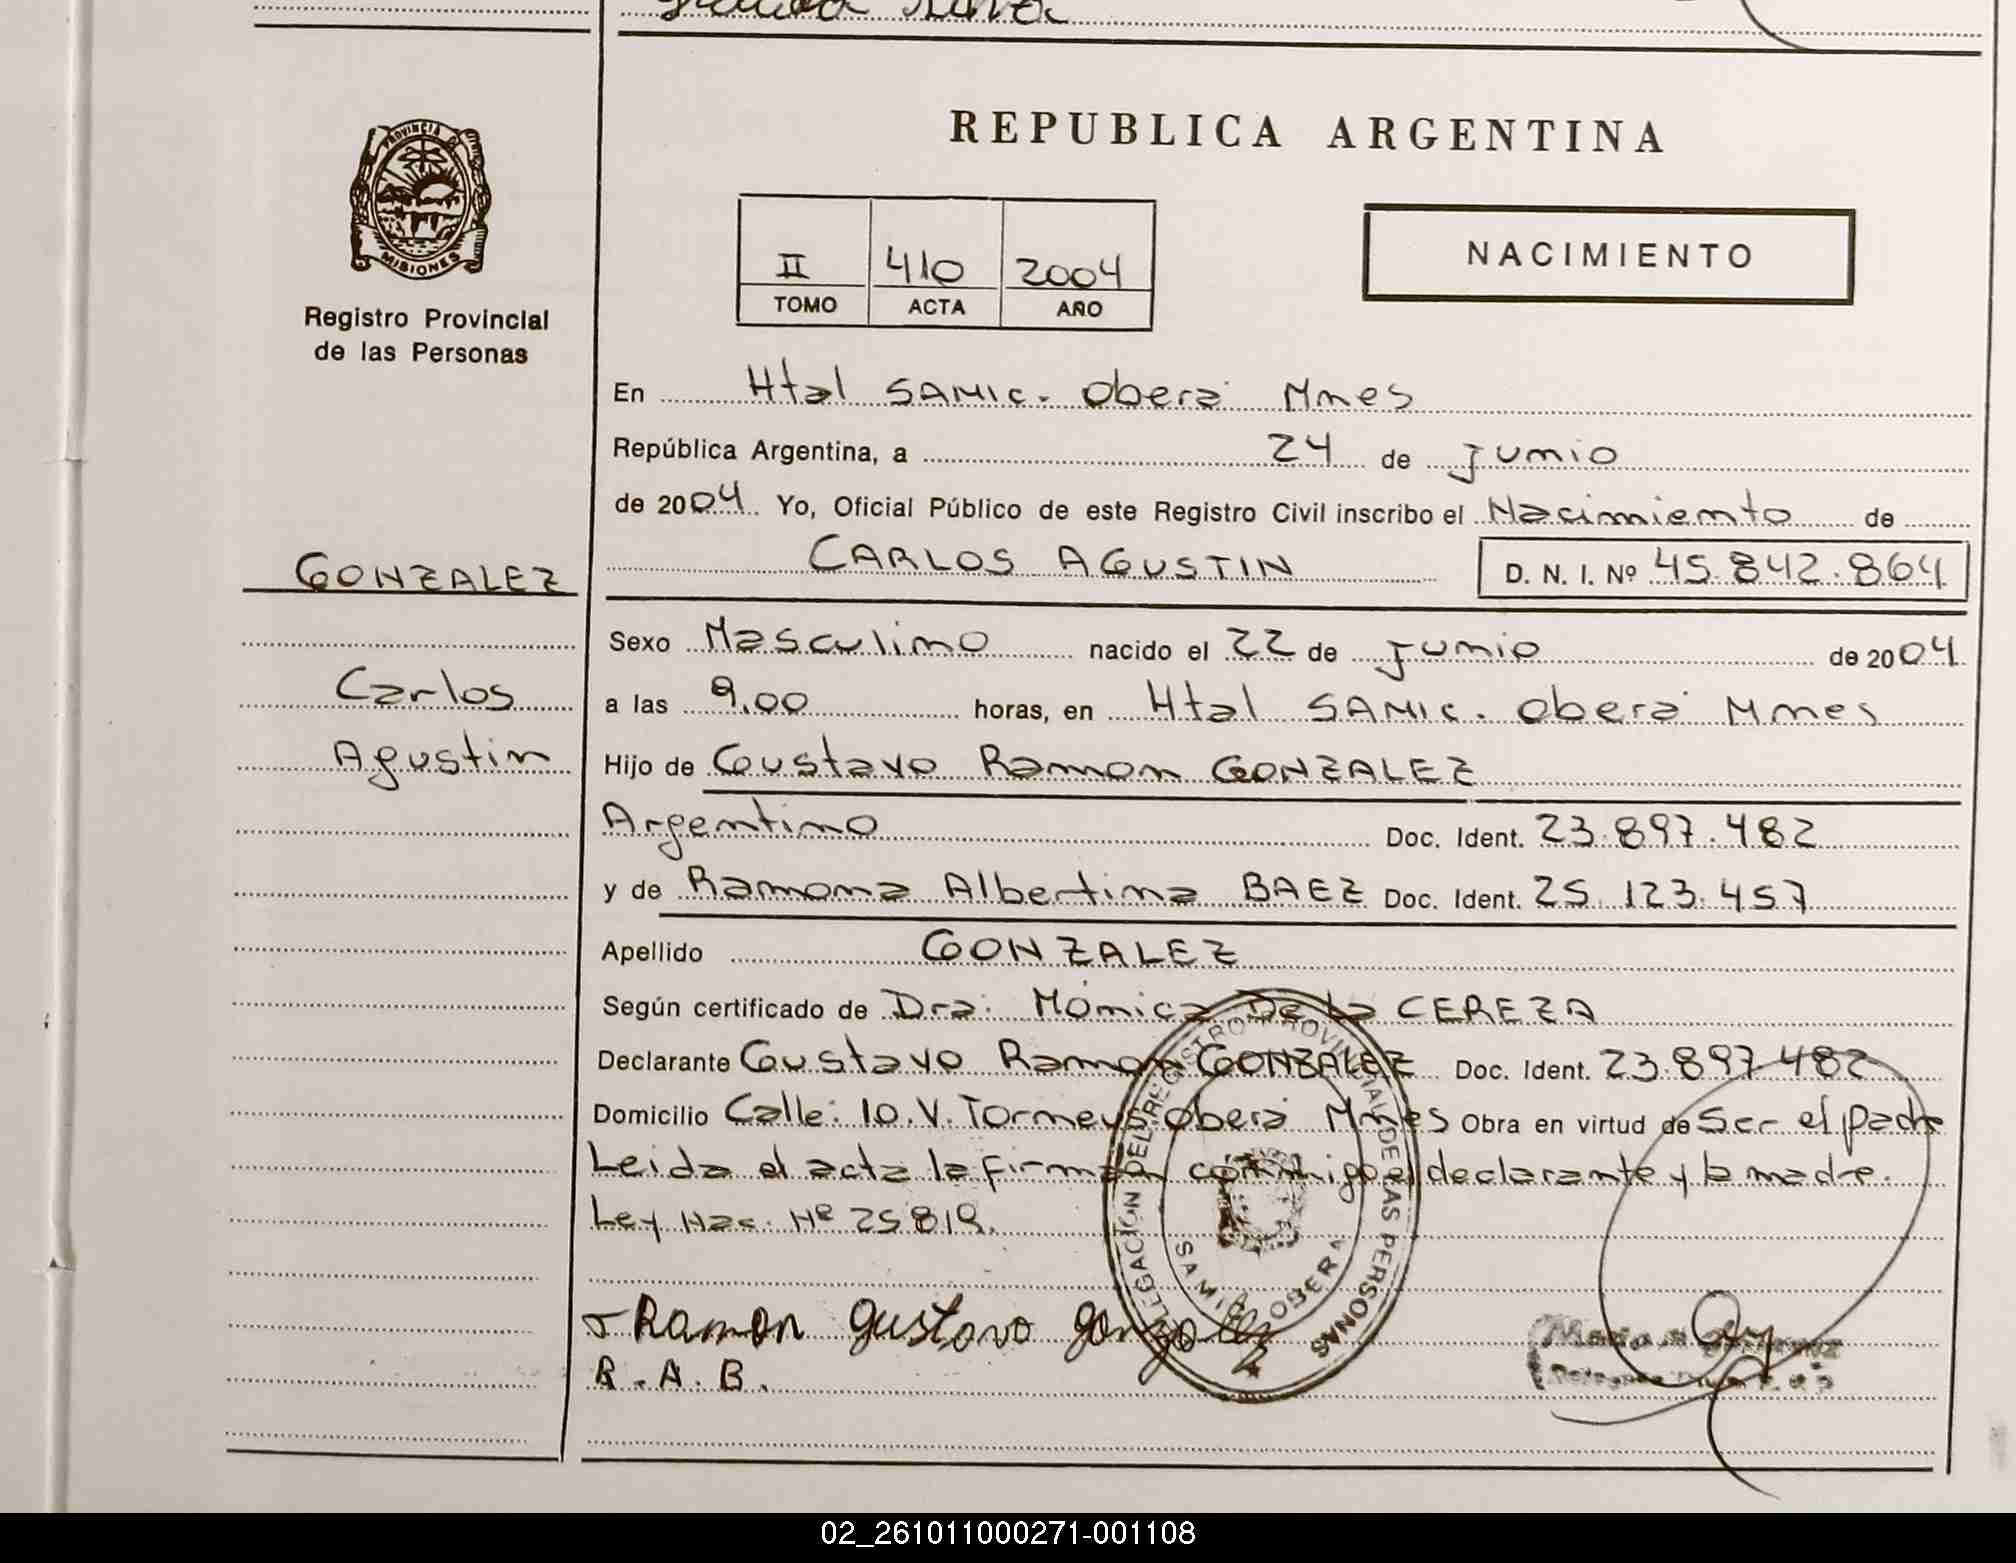 PROVINCIA DE
MISIONES
Registro Provincial
de las Personas
REPUBLICA ARGENTINA
II 410 2004
TOMO ACTA AÑO
NACIMIENTO
En Htal SAMIC. Oberá Mnes
República Argentina, a 24 de junio
de 2004 Yo, Oficial Público de este Registro Civil inscribo el Nacimiento de
GONZALEZ
CARLOS AGUSTIN D. N. I. Nº 45.842.864
Carlos
Agustin
Sexo Masculino nacido el 22 de junio de 2004
a las 9,00 horas, en Htal SAMIC. Oberá Mnes
Hijo de Gustavo Ramon GONZALEZ
Argentino Doc. Ident. 23.897.482
y de Ramona Albertina BAEZ Doc. Ident. 25.123.457
Apellido GONZALEZ
Según certificado de Dra. Mónica De la CEREZA
Declarante Gustavo Ramon GONZALEZ Doc. Ident. 23.897.482
Domicilio Calle: 10. V. Torneus Oberá Mnes Obra en virtud de Ser el padre
Leida el acta la firman conmigo el declarante y la madre.
Ley Nac. Nº 25.819.
DELEGACION DEL REGISTRO PROVINCIAL DE LAS PERSONAS
SAMIC OBERA
Ramon Gustavo Gonzalez
R.A.B.
02_261011000271-001108